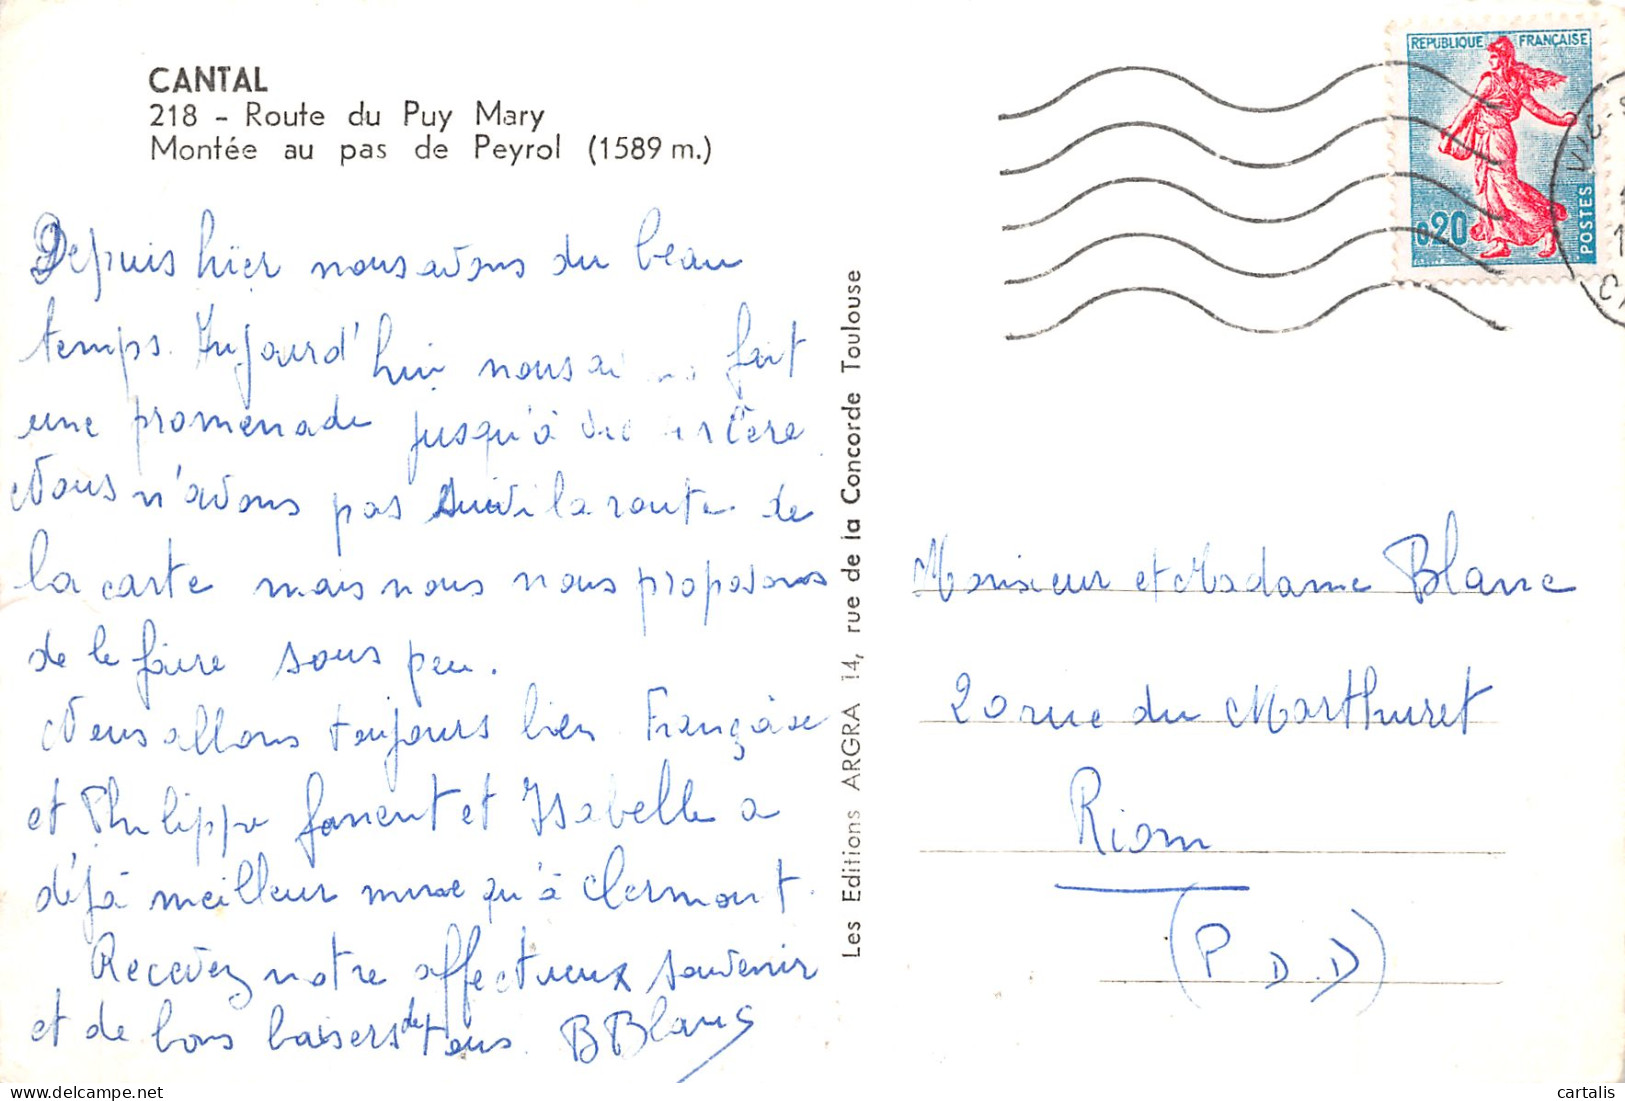 CANTAL
218 - Route du Puy Mary
Montée au pas de Peyrol (1589 m.)
Depuis hier nous avons du beau
temps. Aujourd'hui nous fait
une promenade jusqu'à
Nous n'avons pas suivi la route de
la carte mais nous nous proposons
de le faire sous peu.
Nous allons toujours bien Françoise
et Philippe et Isabelle a
déjà meilleur mine qu'à Clermont.
Recevez notre affectueux souvenir
et de bons baisers de tous. B Blanc
Les Editions ARGRA 14, rue de la Concorde Toulouse
REPUBLIQUE FRANÇAISE
0,20
POSTES
Monsieur et Madame Blanc
20 rue du Marthuret
Riom
(P D D)
cartalis